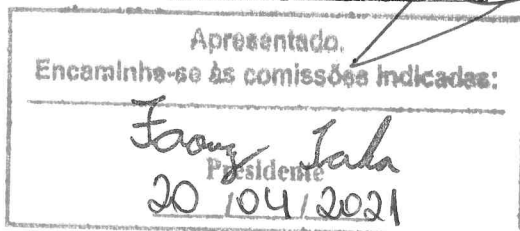 Apresentado.
Encaminhe-se às comissões indicadas:
Faouz Taha
Presidente
20/04/2021